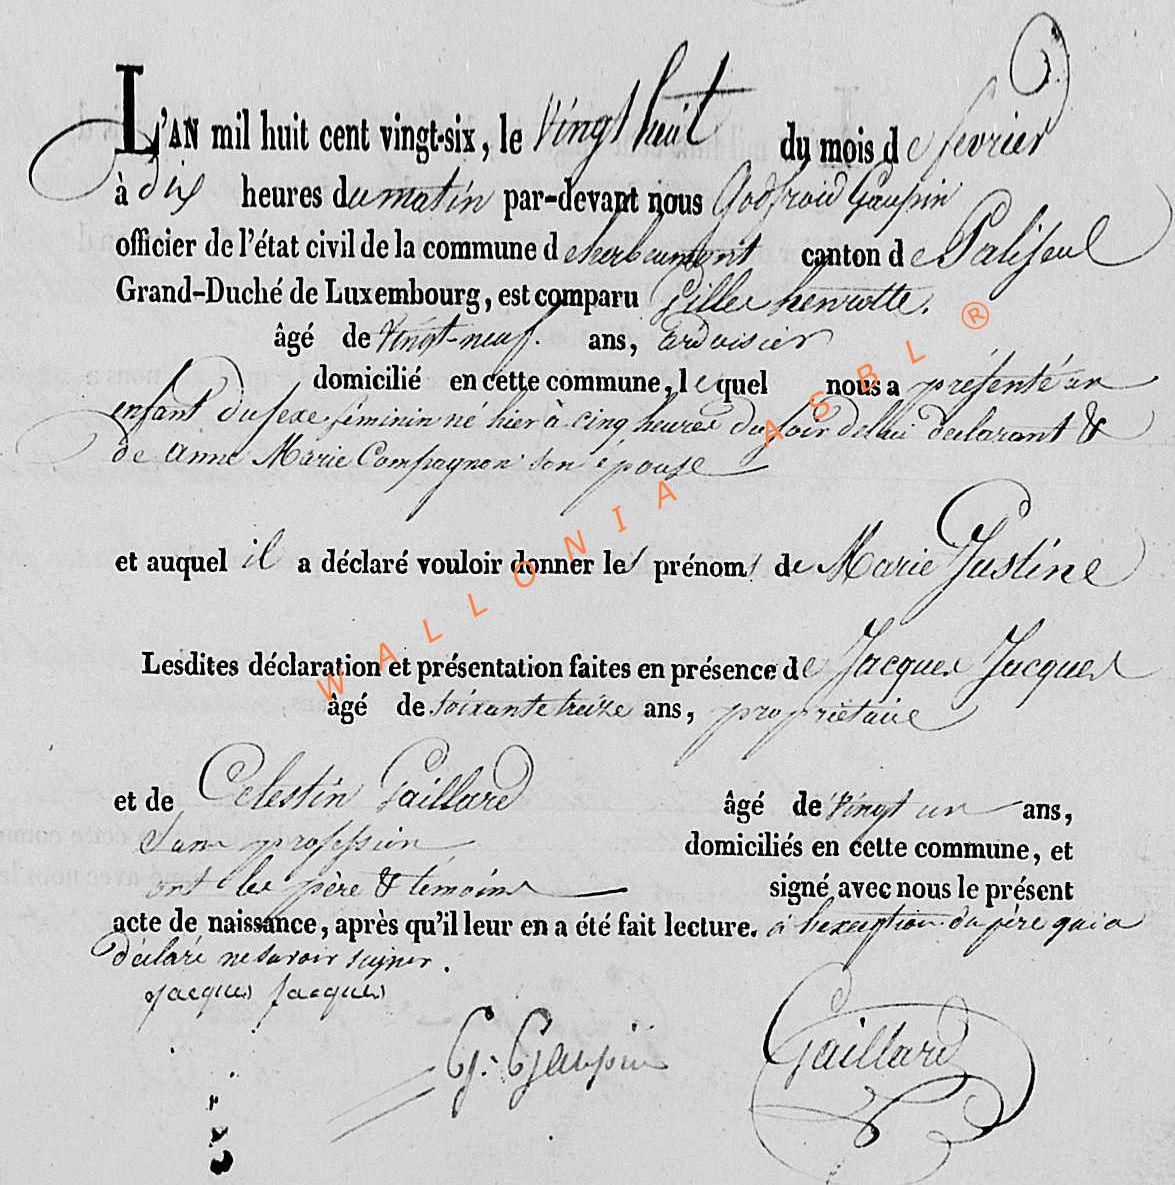 L'AN mil huit cent vingt-six, le vingt huit du mois de fevrier
à dix heures du matin par-devant nous Godfroid Gaupin
officier de l'état civil de la commune d'herbeumont canton de Paliseul
Grand-Duché de Luxembourg, est comparu Gilles henrotte.
âgé de vingt-neuf. ans, ardoisier
domicilié en cette commune, lequel nous a présenté un
enfant du sexe féminin né hier à cinq heures du soir de lui déclarant &
de Anne Marie Compagnon son épouse
et auquel il a déclaré vouloir donner les prénoms de Marie Justine
Lesdites déclaration et présentation faites en présence de Jacques Jacques
âgé de soixante treize ans, propriétaire
et de Celestin Gaillard âgé de vingt un ans,
sans profession domiciliés en cette commune, et
ont les père & témoins signé avec nous le présent
acte de naissance, après qu'il leur en a été fait lecture. à l'exception du père qui a
déclaré ne savoir signer.
Jacques Jacques
G. Gaupin Gaillard
WALLONIA ASBL ®